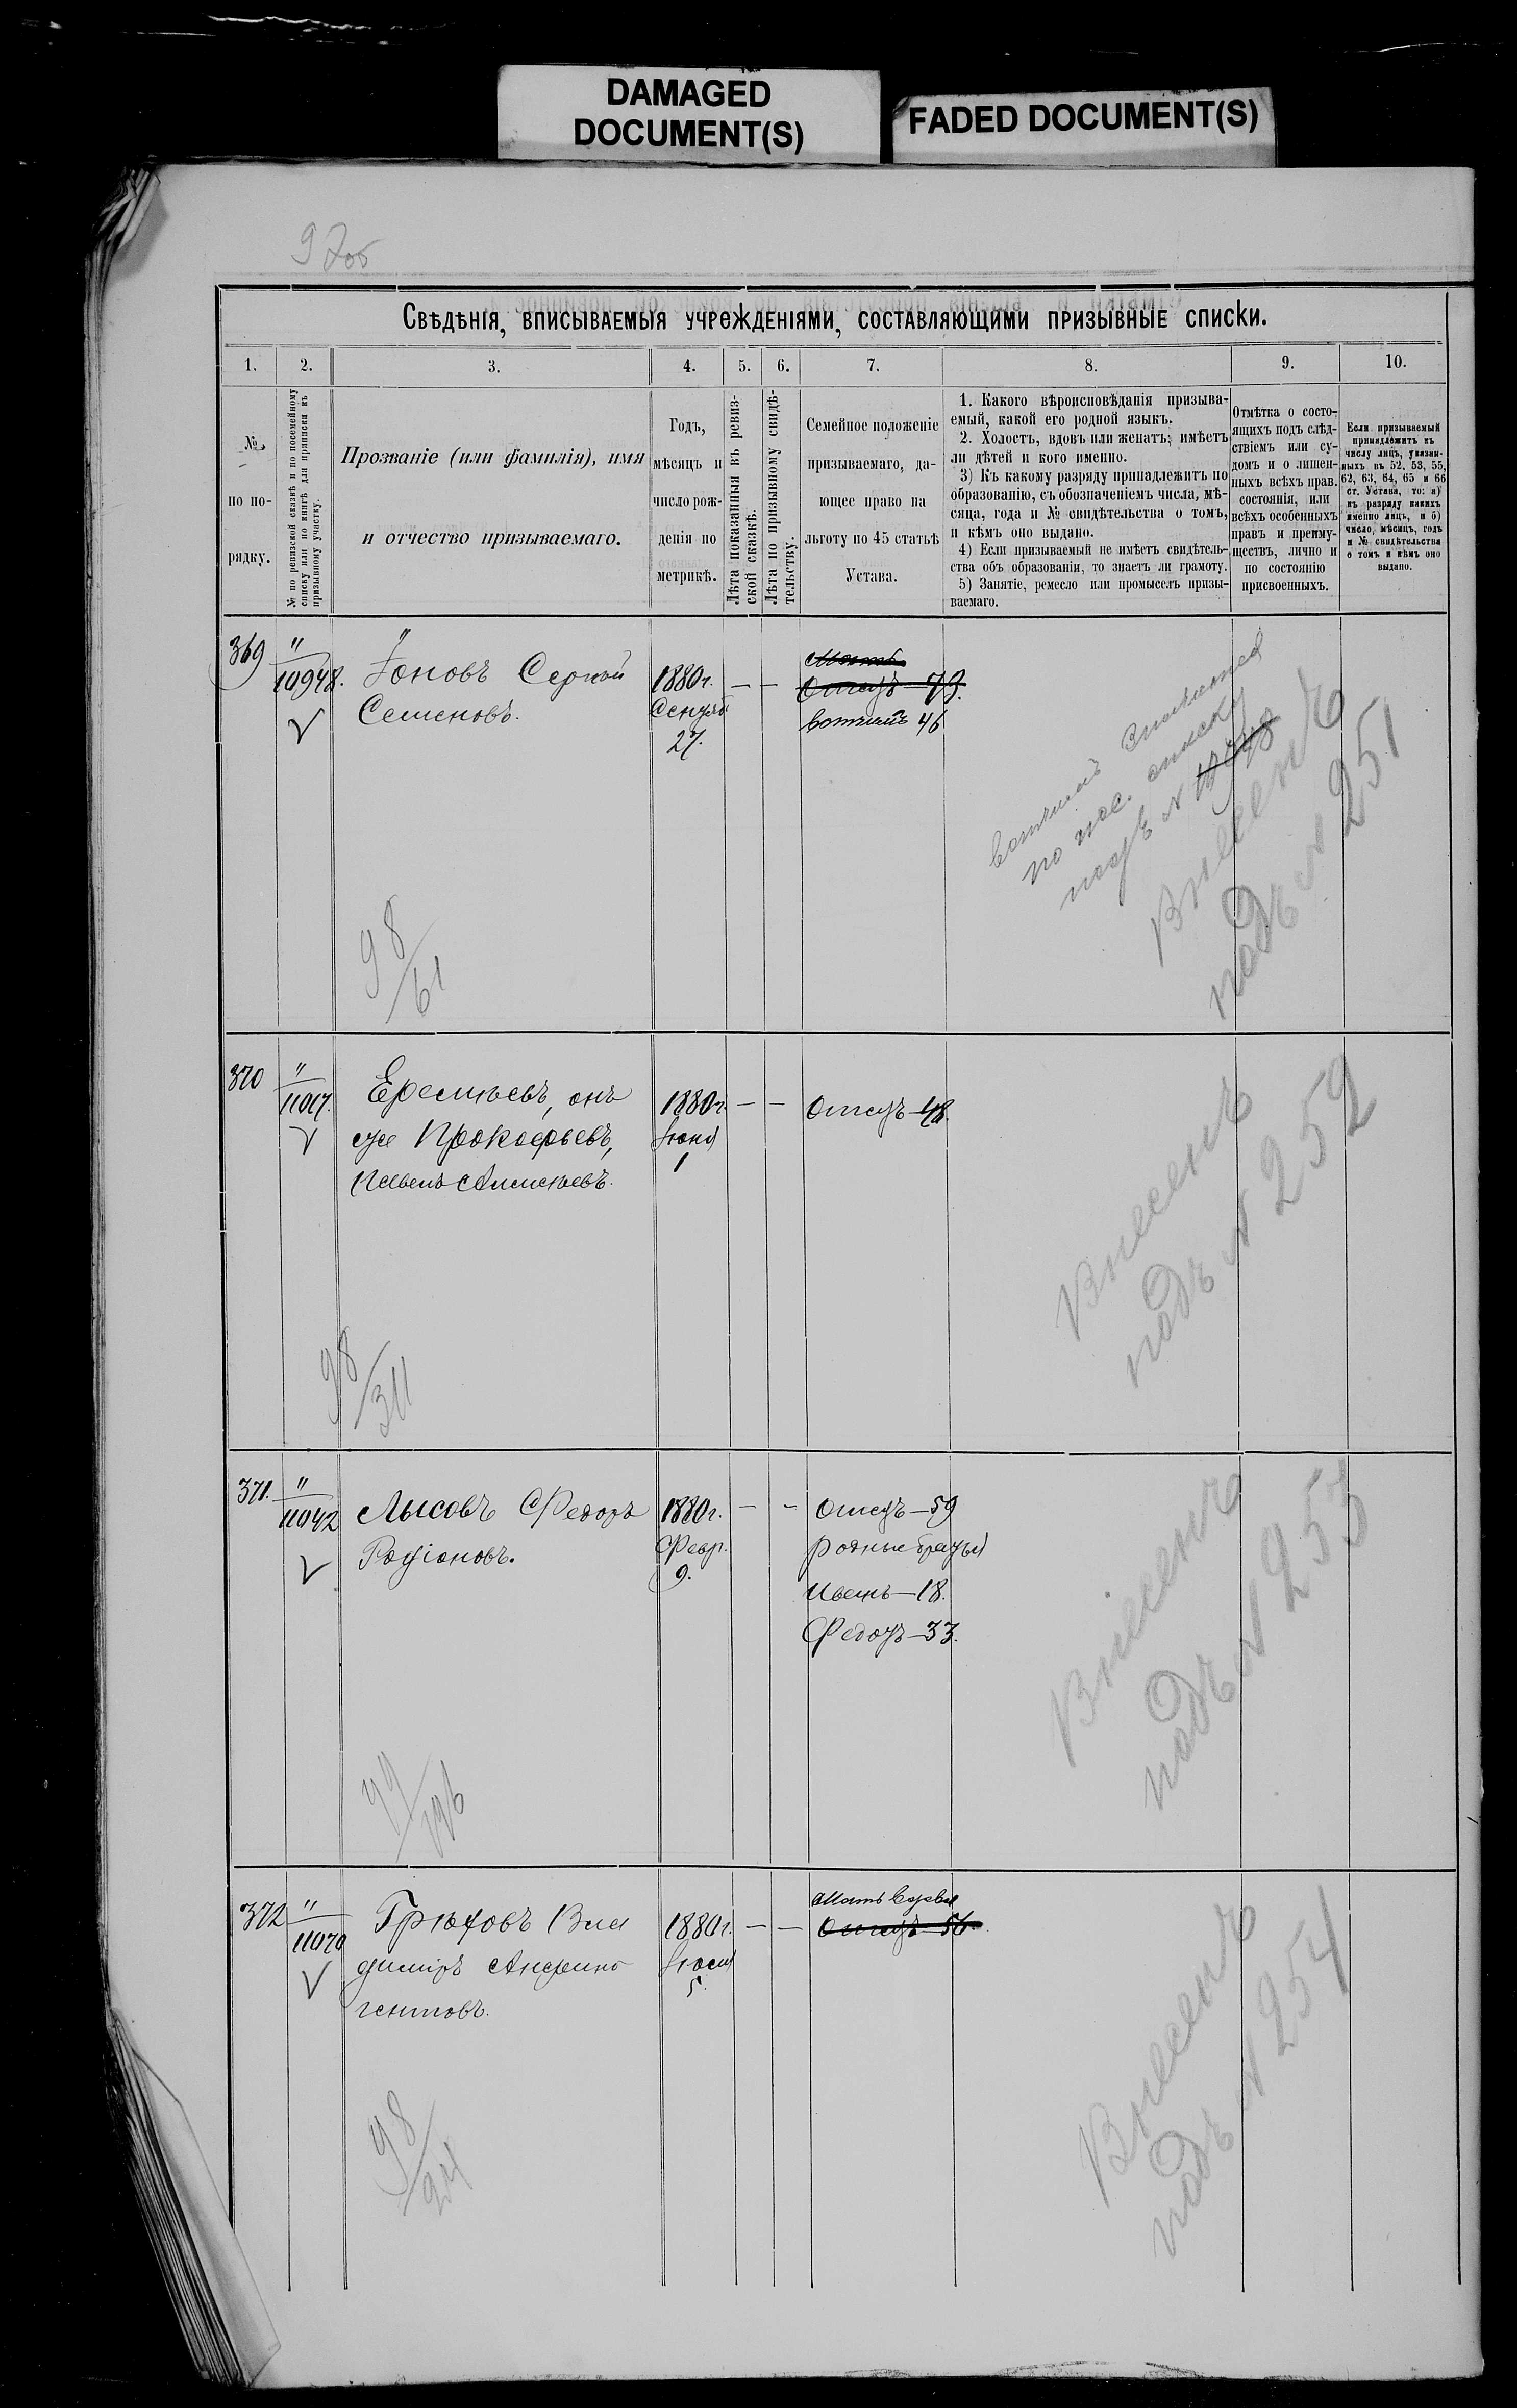 DAMAGED
DOCUMENT(S)
FADED DOCUMENT(S)
97об
Свѣдѣнія, вписываемыя учрежденіями, составляющими призывные списки.
1. 2. 3. 4. 5. 6. 7. 8. 9. 10.
№
по по-
рядку.
№ по ревизской сказкѣ и по посемейному
списку или по книгѣ для приписки къ
призывному участку.
Прозваніе (или фамилія), имя
и отчество призываемаго.
Годъ,
мѣсяцъ и
число рож-
денія по
метрикѣ.
Лѣта показанныя въ ревиз-
ской сказкѣ.
Лѣта по призывному свидѣ-
тельству.
Семейное положеніе
призываемаго, да-
ющее право на
льготу по 45 статьѣ
Устава.
1. Какого вѣроисповѣданія призыва-
емый, какой его родной языкъ.
2. Холостъ, вдовъ или женатъ; имѣетъ
ли дѣтей и кого именно.
3) Къ какому разряду принадлежитъ по
образованію, съ обозначеніемъ числа, мѣ-
сяца, года и № свидѣтельства о томъ,
и кѣмъ оно выдано.
4) Если призываемый не имѣетъ свидѣтель-
ства объ образованіи, то знаетъ ли грамоту.
5) Занятіе, ремесло или промыселъ призы-
ваемаго.
Отмѣтка о состо-
ящихъ подъ слѣд-
ствіемъ или су-
домъ и о лишен-
ныхъ всѣхъ прав.
состоянія, или
всѣхъ особенныхъ
правъ и преиму-
ществъ, лично и
по состоянію
присвоенныхъ.
Если призываемый
принадлежитъ къ
числу лицъ, указан-
ныхъ въ 52, 53, 55,
62, 63, 64, 65 и 66
ст. Устава, то: а)
къ разряду какихъ
именно лицъ, и б)
число, мѣсяцъ, годъ
и № свидѣтельства
о томъ и кѣмъ оно
выдано.
369 "
10948. Іоновъ Сергѣй 1880г. — — Мать
Отецъ 73.
Семеновъ. Сентяб вотчимъ 46
27.
вотчимъ значится
по пос. списку
подъ №
Внесенъ
подъ № 251
98/61
370 "
11017. Еремѣевъ, онъ 1880г. — — Отецъ 48.
же Прокофьевъ, Іюня
1
Внесенъ
подъ № 252
98/311
371. "
11042 Лысовъ Федоръ 1880г. — — Отецъ—59
Родіоновъ. Февр. родные братья
9. Иванъ—18.
Федотъ—33.
Внесенъ
подъ № 253
372 "
11070 Грѣховъ Вла 1880г. — — Мать вдова
Отецъ 56
диміръ
5.
Внесенъ
подъ № 254